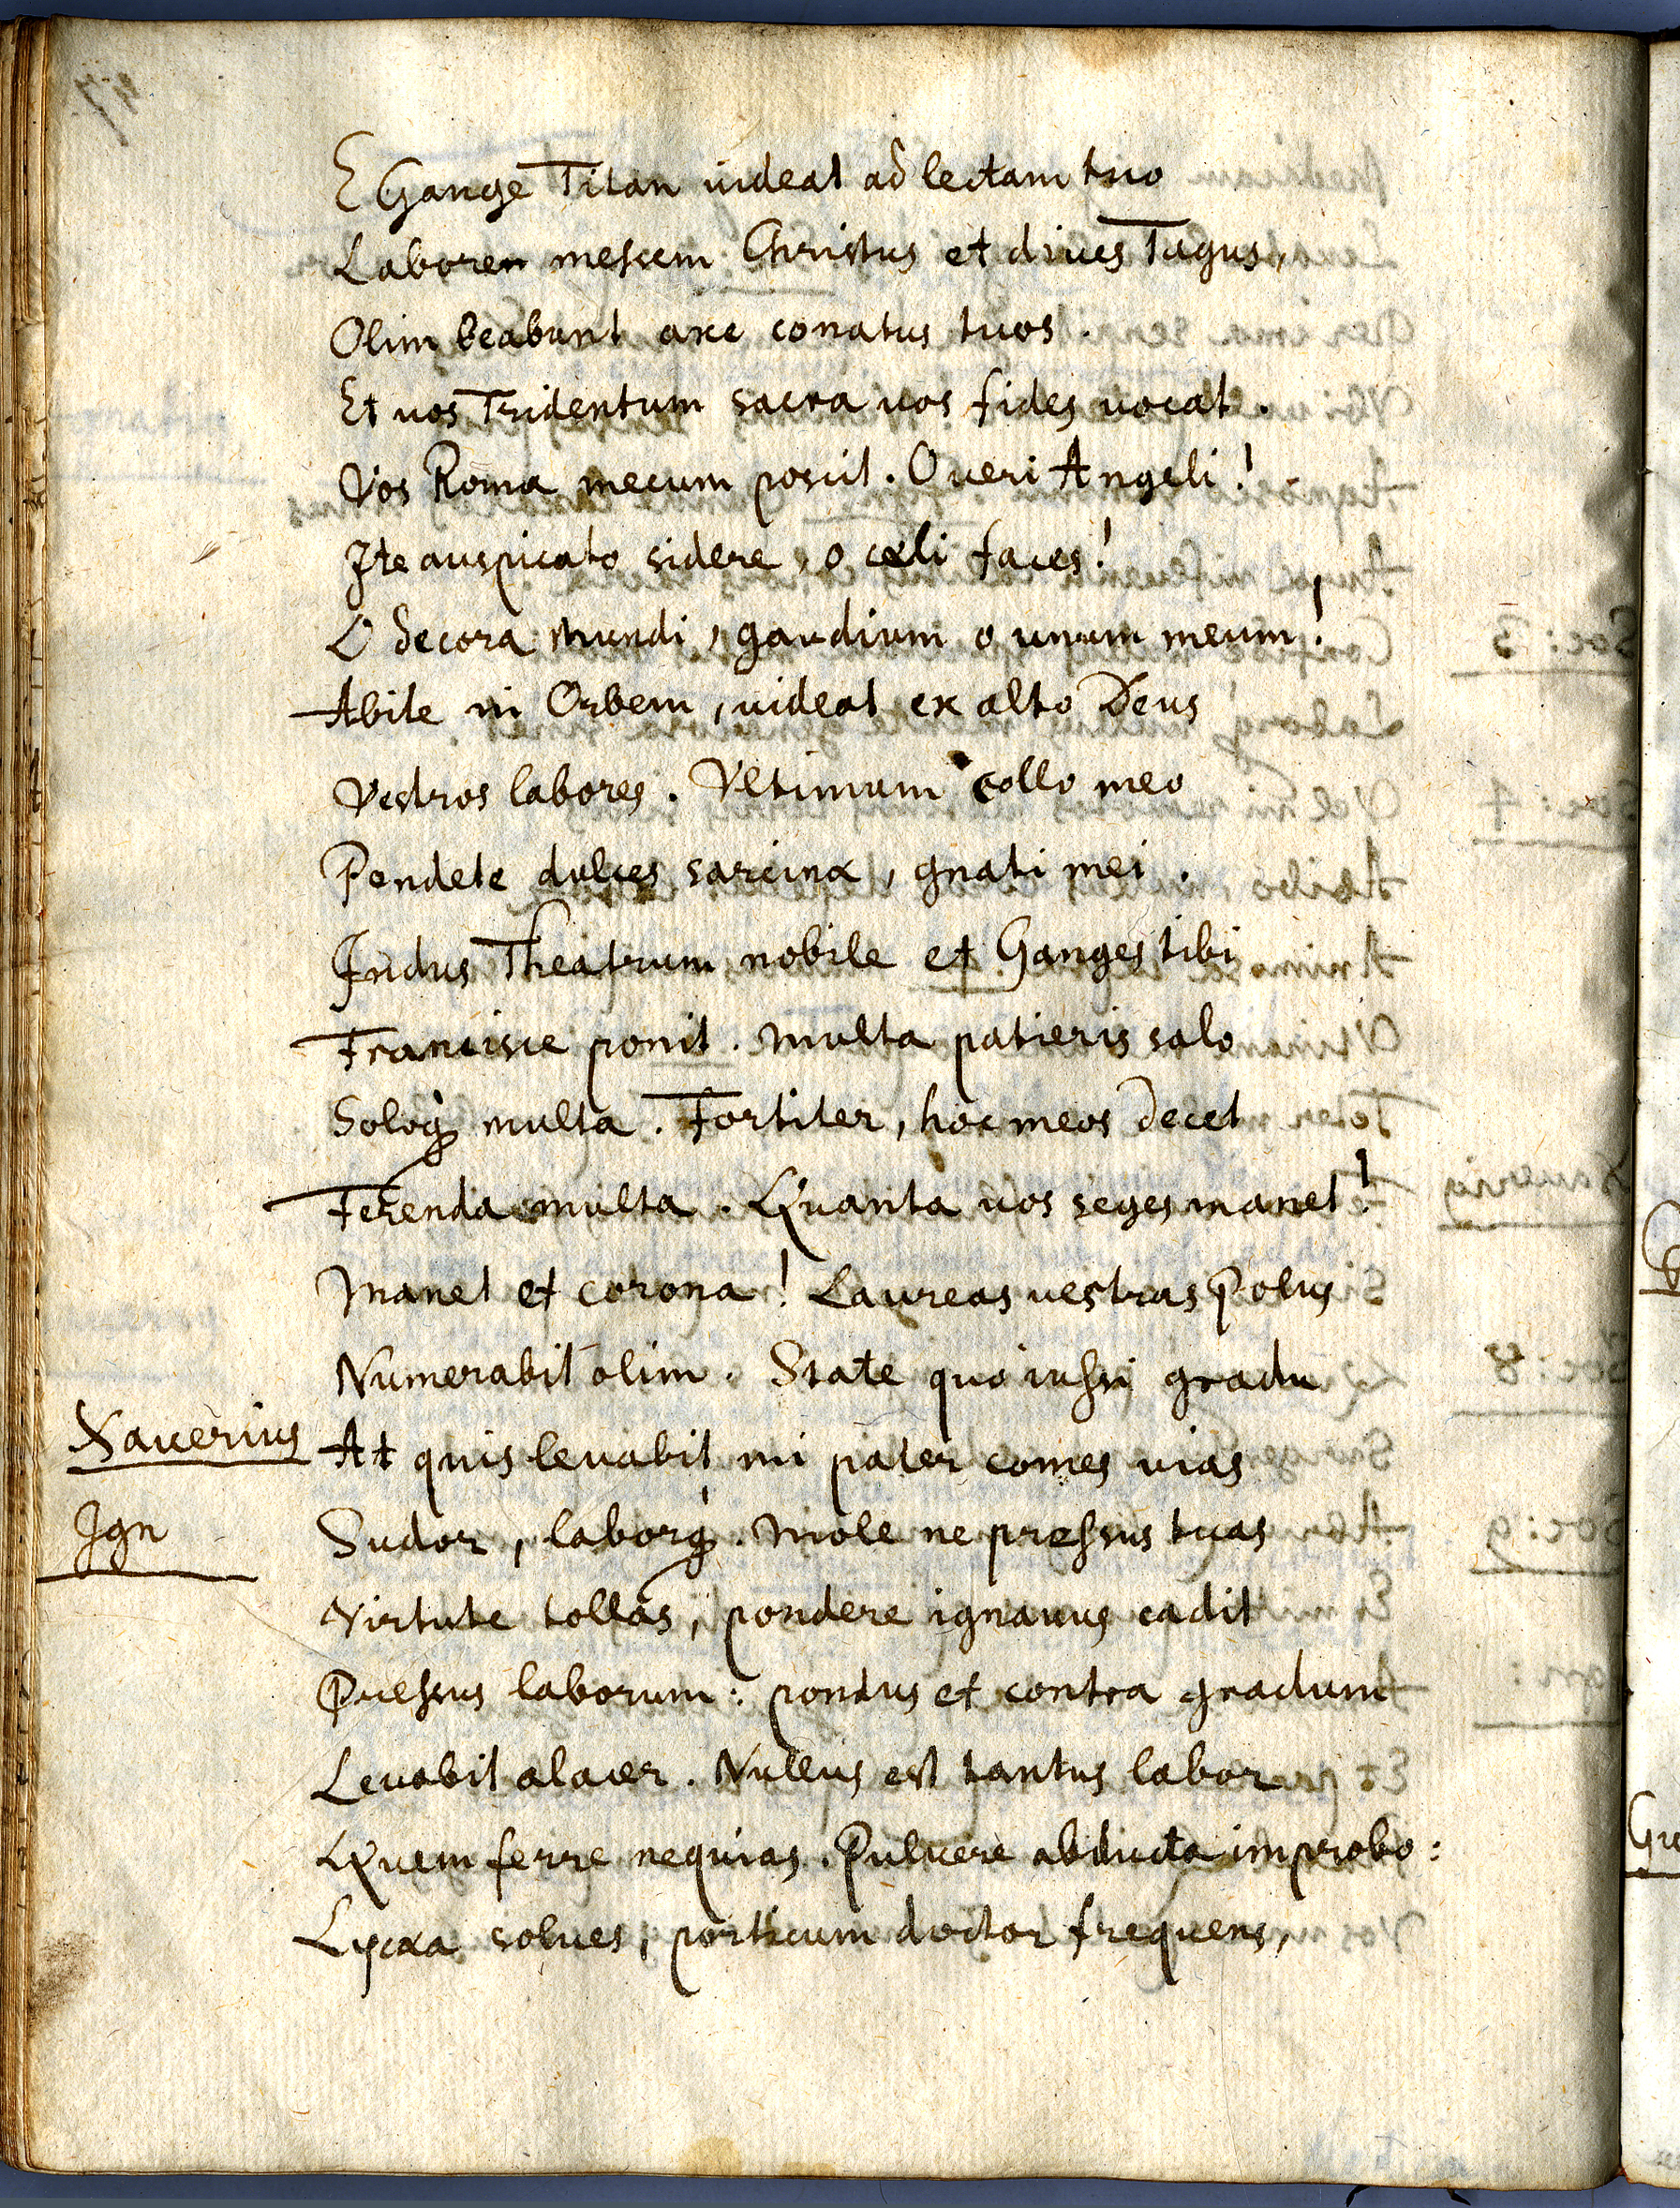 E Gange Titan uideat ad lectam tuo
Laboren messem Christus et diues Tagus,
Olim beabunt axe conatus tuos.
Et uos Tridentum sacra uos fides uocat.
Vos Roma mecum poscit. O ueri Angeli!
Ite auspicato sidere, o cæli faces!
O decora mundi, gaudium o unum meum!
Abite in Orbem, uideat ex alto Deus
Vestros labores. Vltimum collo meo
Pendete dulces sarcinæ, gnati mei.
Indus Theatrum nobile et Ganges tibi
Francisce ponit. Multa patieris salo
Soloq́ multa. Fortiter, hoc meos decet
Ferenda multa. Quanta uos seges manet!
Manet et corona! Laureas uestras Polus
Numerabit olim. State quo iussi gradu
Xauerius At quis leuabit mi pater comes uias
Ign Sudor, laborq́. Mole ne pressus tuas
Virtute tollas, pondere ignauus cadit
Pressus laborum: pondus et contra gradum
Leuabit alacer. Nullus est tantus labor
Quem ferre nequias. Puluere abducta improbo:
Lycæa solues, porticum doctor frequens,